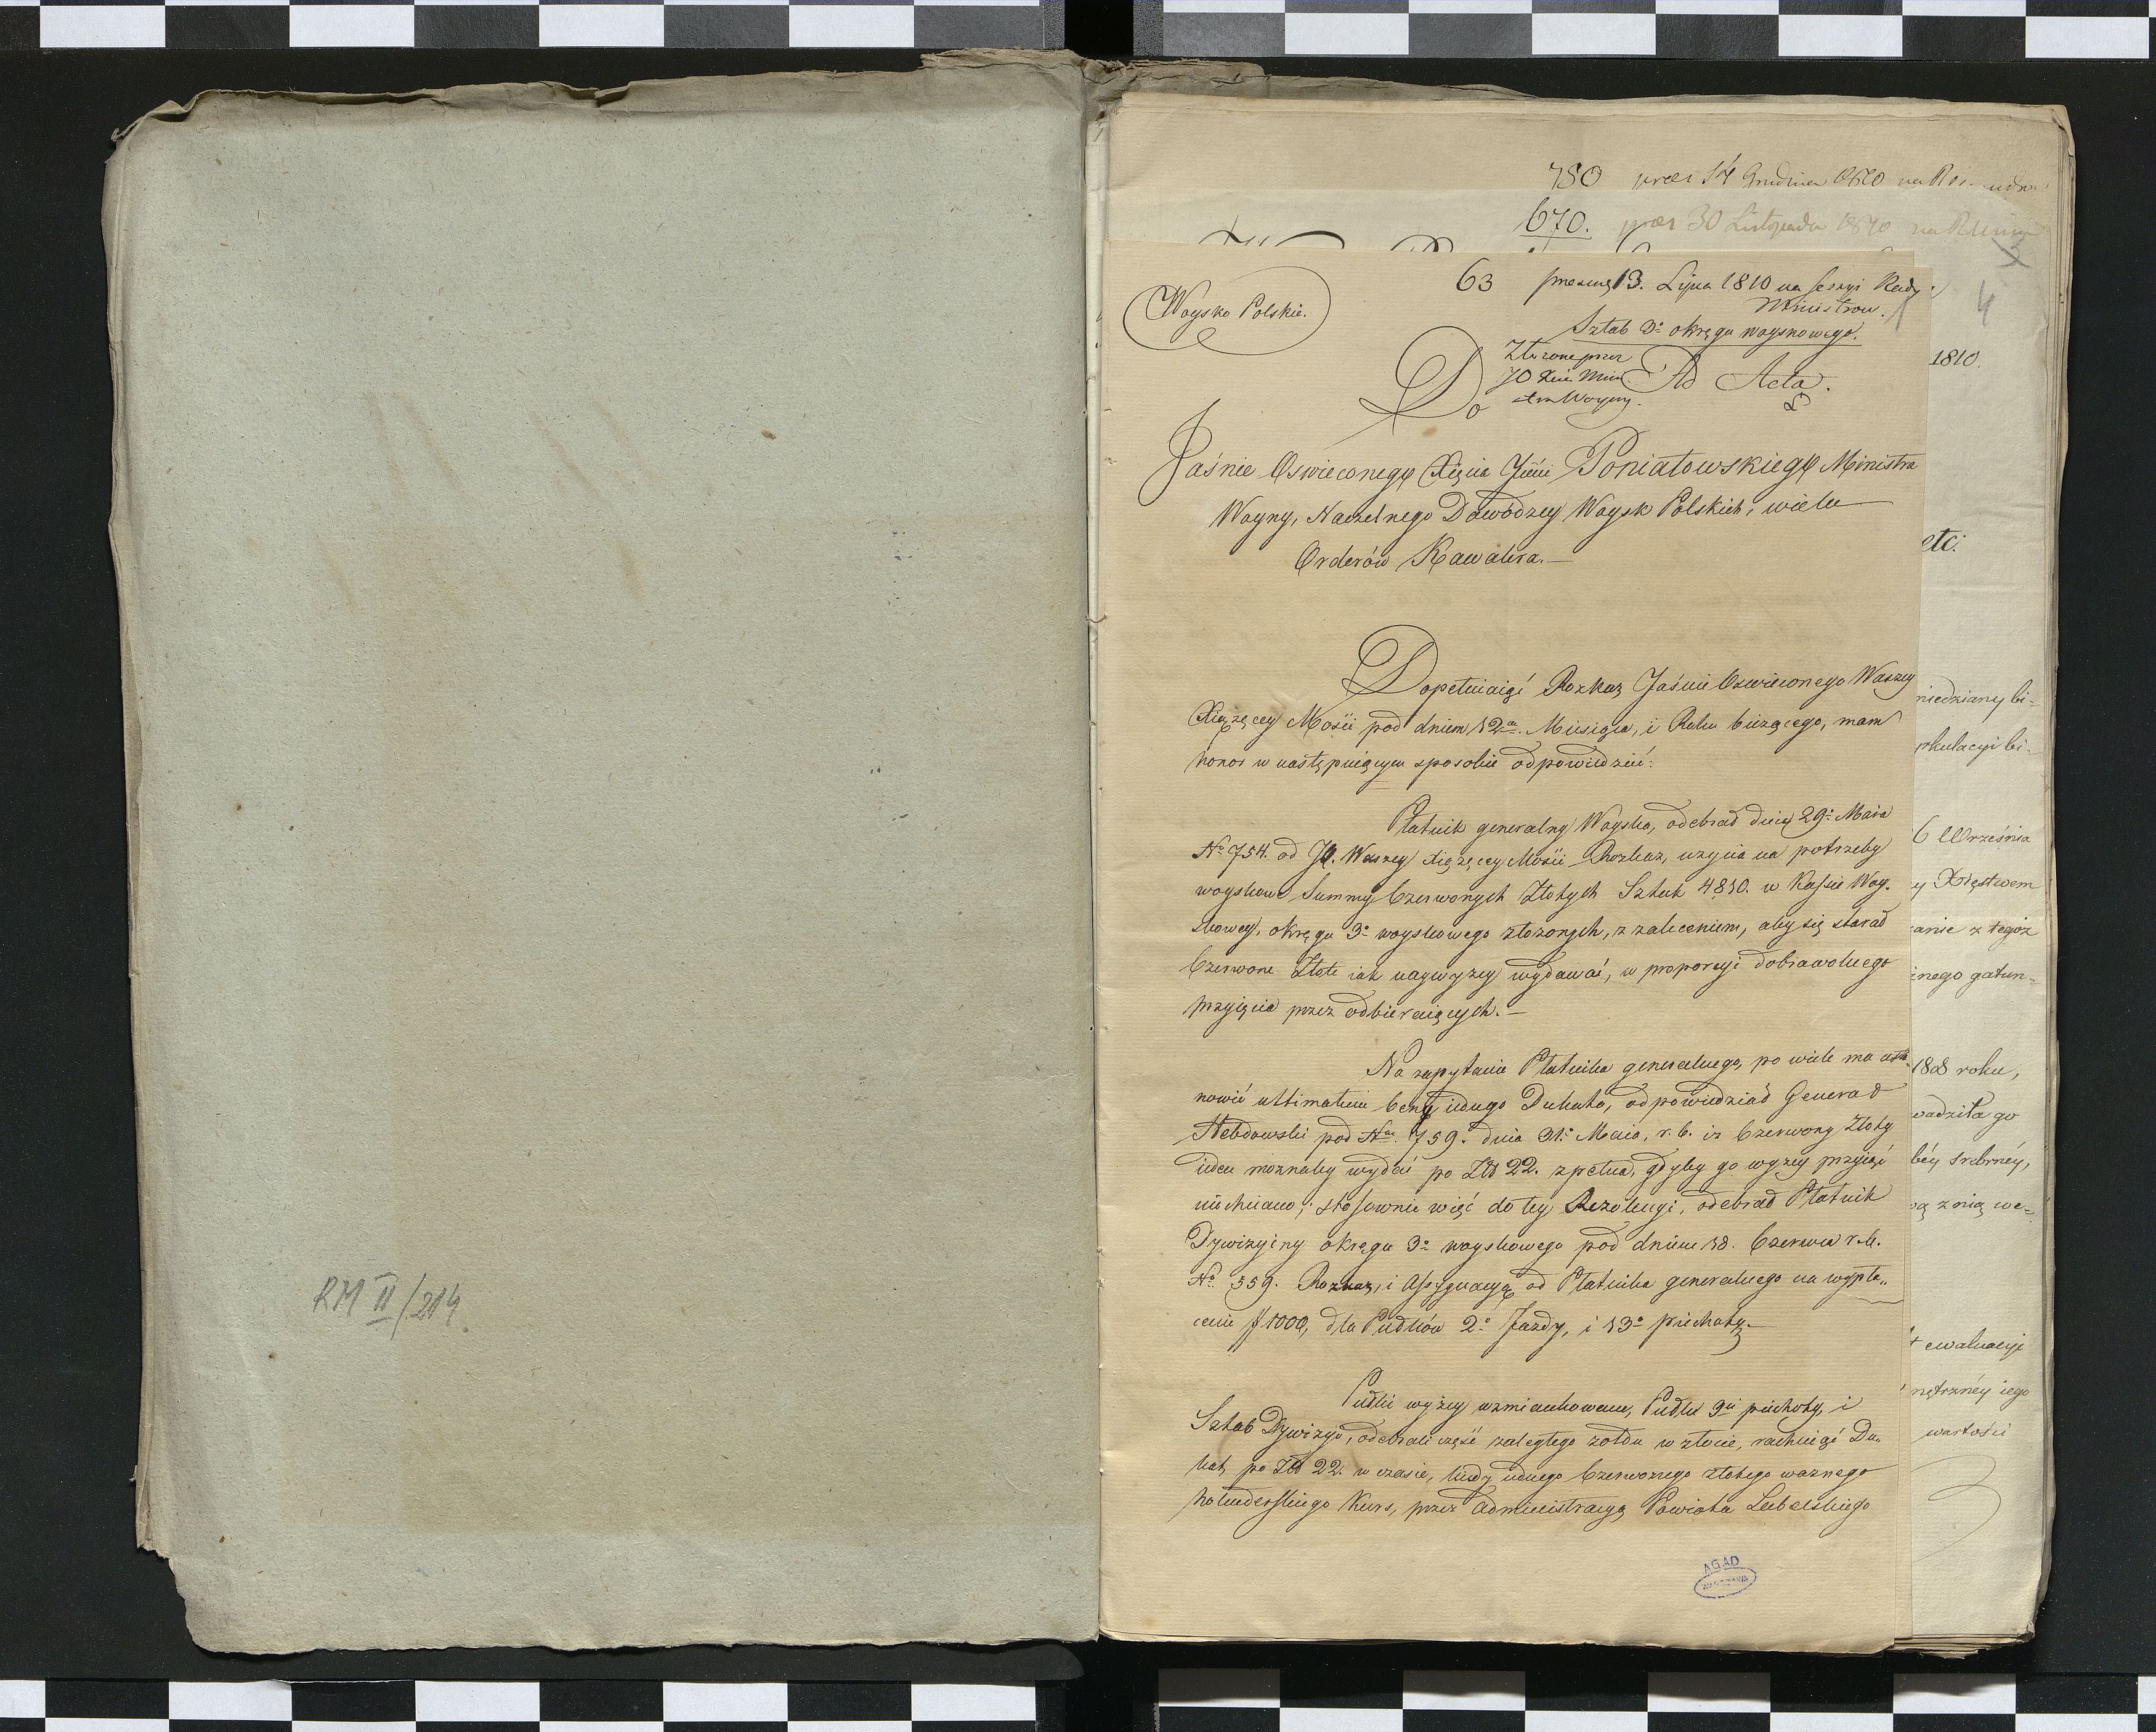 RM II/214
780 praes 14 Grudnia 1810 na
670. praes 30 Listopada 1810 na
4
63 praesens 13. Lipca 1810 na Sessyi Rady
Ministrow.
Woysko Polskie.
Sztab 3o okręgu woyskowego.
Złożone przez
JO Xcia Mini
stra Woyny.
Ad Acta.
Do
Jaśnie Oswieconego Xięcia Jmci Poniatowskiego Ministra
Woyny, Naczelnego Dowódzcy Woysk Polskich, wielu
Orderów Kawalera.—
Dopełniaiąć Rozkaz Jaśnie Oswieconego Waszey
Xiążęcey Mości pod dniem 12m Miesiąca, i Roku bieżącego, mam
honor w następuiącym sposobie odpowiedzieć:
Płatnik generalny Woyska, odebrał dnia 29o Maia
No 754. od JO. Waszey Xiążęcey Mości Rozkaz, użycia na potrzeby
woyskowe Summy Czerwonych Złotych Sztuk 4810. w Kassie Woy-
skowey, okręgu 3o woyskowego złożonych, z zaleceniem, aby się starał
Czerwone Złote iak naywyżey wydawać, w proporcyi dobrawolnego
przyięcia przez odbieraiących.—
Na zapytanie Płatnika generalnego, po wiele ma usta-
nowić ultimatum ceny iednego Dukata, odpowiedział Generał
Hebdowski pod No 759. dnia 31o Maia, r. b. iż Czerwony Złoty
ieden możnaby wydać po Złł 22. zpełna, gdyby go wyżey przyiąć
niechciano; stosownie więć do tey Rezolucyi, odebrał Płatnik
Dywizyiny okręgu 3o woyskowego pod dniem 18. Czerwca r. b.
No 559. Rozkaz, i Assygnacyą od Płatnika generalnego na wypła„
cenie # 1000, dla Pułków 2o Jazdy, i 13o piechoty.—
Pułki wyżey wzmiankowane, Pułk 9ty piechoty, i
Sztab Dywizyi, odebrali część zaległego żołdu w złocie, rachuiąć Du„
kat, po Złł 22. w czasie, kiedy iednego Czerwonego złotego ważnego
holenderskiego Kurs, przez Administracyą Powiatu Lubelskiego
AGAD
1810.
etc:
miedziany bi-
rkulacyi bi-
6 Września
y Xięstwem
anie z tegoż
nego gatun-
1808 roku,
wadziła go
béy srebrnéy,
ą znią we-
ewaluacyi
nętrznéy iego
wartości